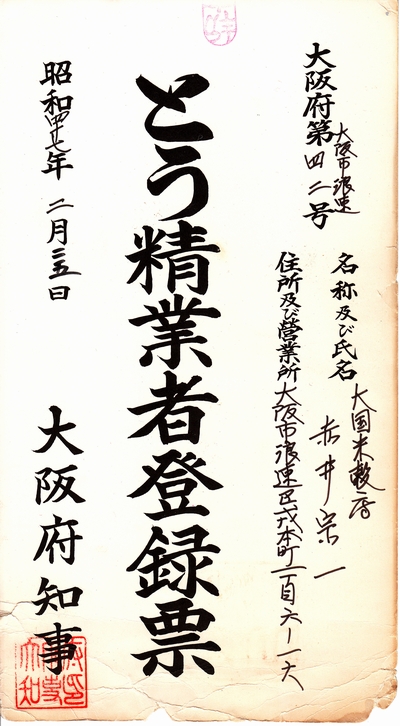 大阪府第四二号
大阪市浪速
名称及び氏名
大国米穀店
赤井宗一
住所及び営業所大阪市浪速区戎本町一百六ー一六
とう精業者登録票
昭和四十七年二月二五日
大阪府知事